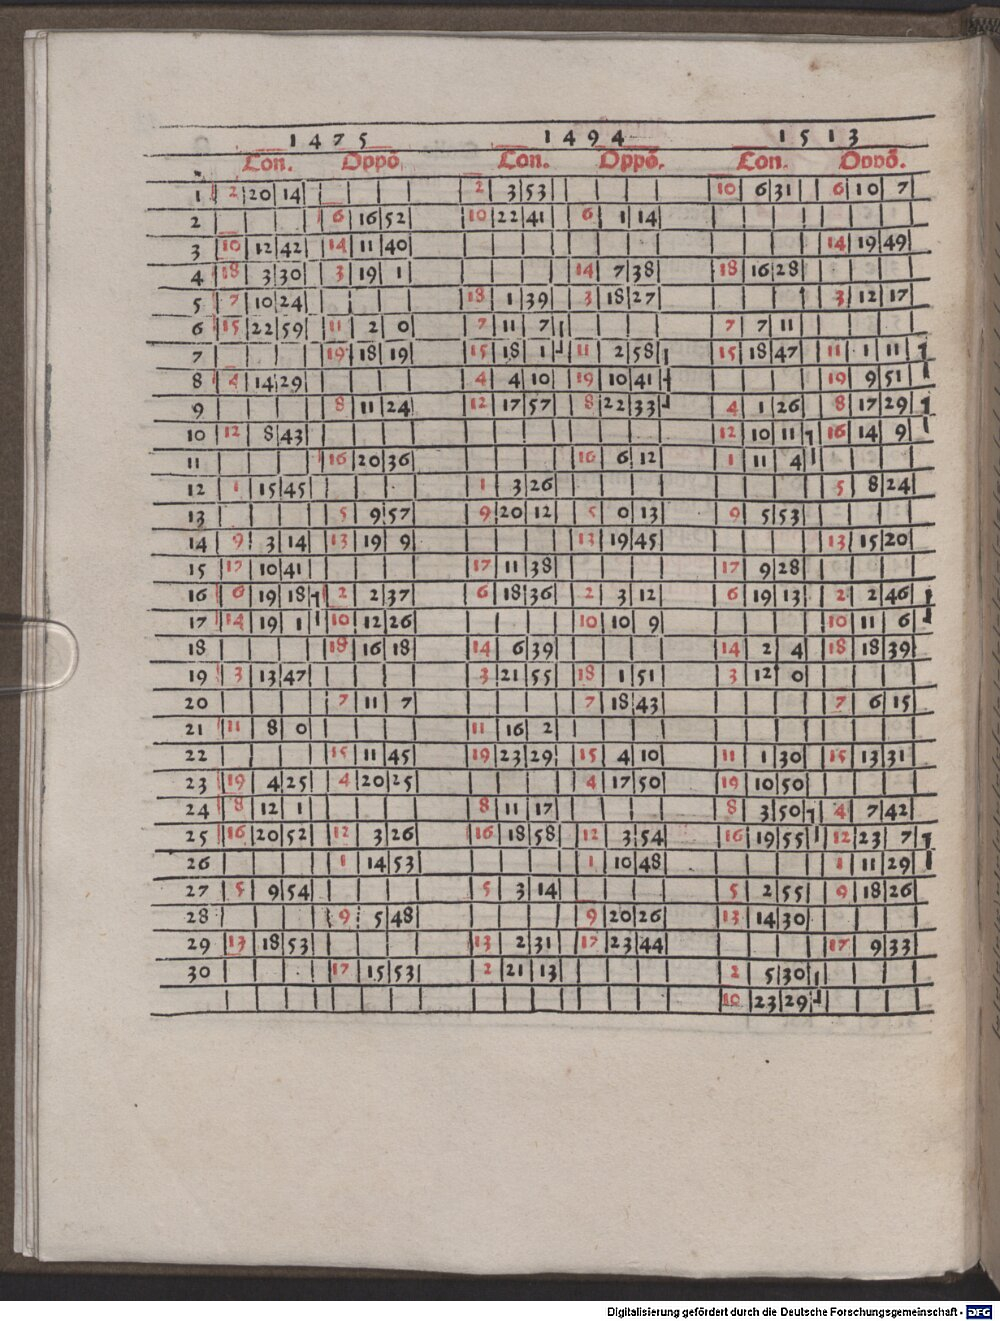 1475 1494 1513
Con. Oppõ. Con. Oppõ. Con. Oppõ.
1 2 20 14 2 3 53 10 6 31 6 10 7
2 6 16 52 10 22 41 6 1 14
3 10 12 42 14 11 40 14 19 49
4 18 3 30 3 19 1 14 7 38 18 16 28
5 7 10 24 18 1 39 3 18 27 3 12 17
6 15 22 59 11 2 0 7 11 7 7 7 11
7 19 18 19 15 18 1 11 2 58 15 18 47 11 1 11
8 4 14 29 4 4 10 19 10 41 19 9 51
9 8 11 24 12 17 57 8 22 33 4 1 26 8 17 29
10 12 8 43 12 10 11 16 14 9
11 16 20 36 16 6 12 1 11 4
12 1 15 45 1 3 26 5 8 24
13 5 9 57 9 20 12 5 0 13 9 5 53
14 9 3 14 13 19 9 13 19 45 13 15 20
15 17 10 41 17 11 38 17 9 28
16 6 19 18 2 2 37 6 18 36 2 3 12 6 19 13 2 2 46
17 14 19 1 10 12 26 10 10 9 10 11 6
18 18 16 18 14 6 39 14 2 4 18 18 39
19 3 13 47 3 21 55 18 1 51 3 12 0
20 7 11 7 7 18 43 7 6 15
21 11 8 0 11 16 2
22 15 11 45 19 23 29 15 4 10 11 1 30 15 13 31
23 19 4 25 4 20 25 4 17 50 19 10 50
24 8 12 1 8 11 17 8 3 50 4 7 42
25 16 20 52 12 3 26 16 18 58 12 3 54 16 19 55 12 23 7
26 1 14 53 1 10 48 1 11 29
27 5 9 54 5 3 14 5 2 55 9 18 26
28 9 5 48 9 20 26 13 14 30
29 13 18 53 13 2 31 17 23 44 17 9 33
30 17 15 53 2 21 13 2 5 30
10 23 29
Digitalisierung gefördert durch die Deutsche Forschungsgemeinschaft - DFG